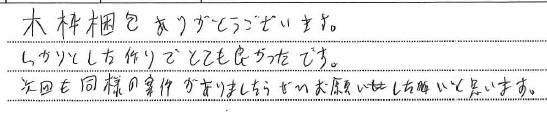 木枠梱包ありがとうございます。
しっかりとした作りでとても良かったです。
次回も同様の案件がありましたらぜひお願いしたいと思います。